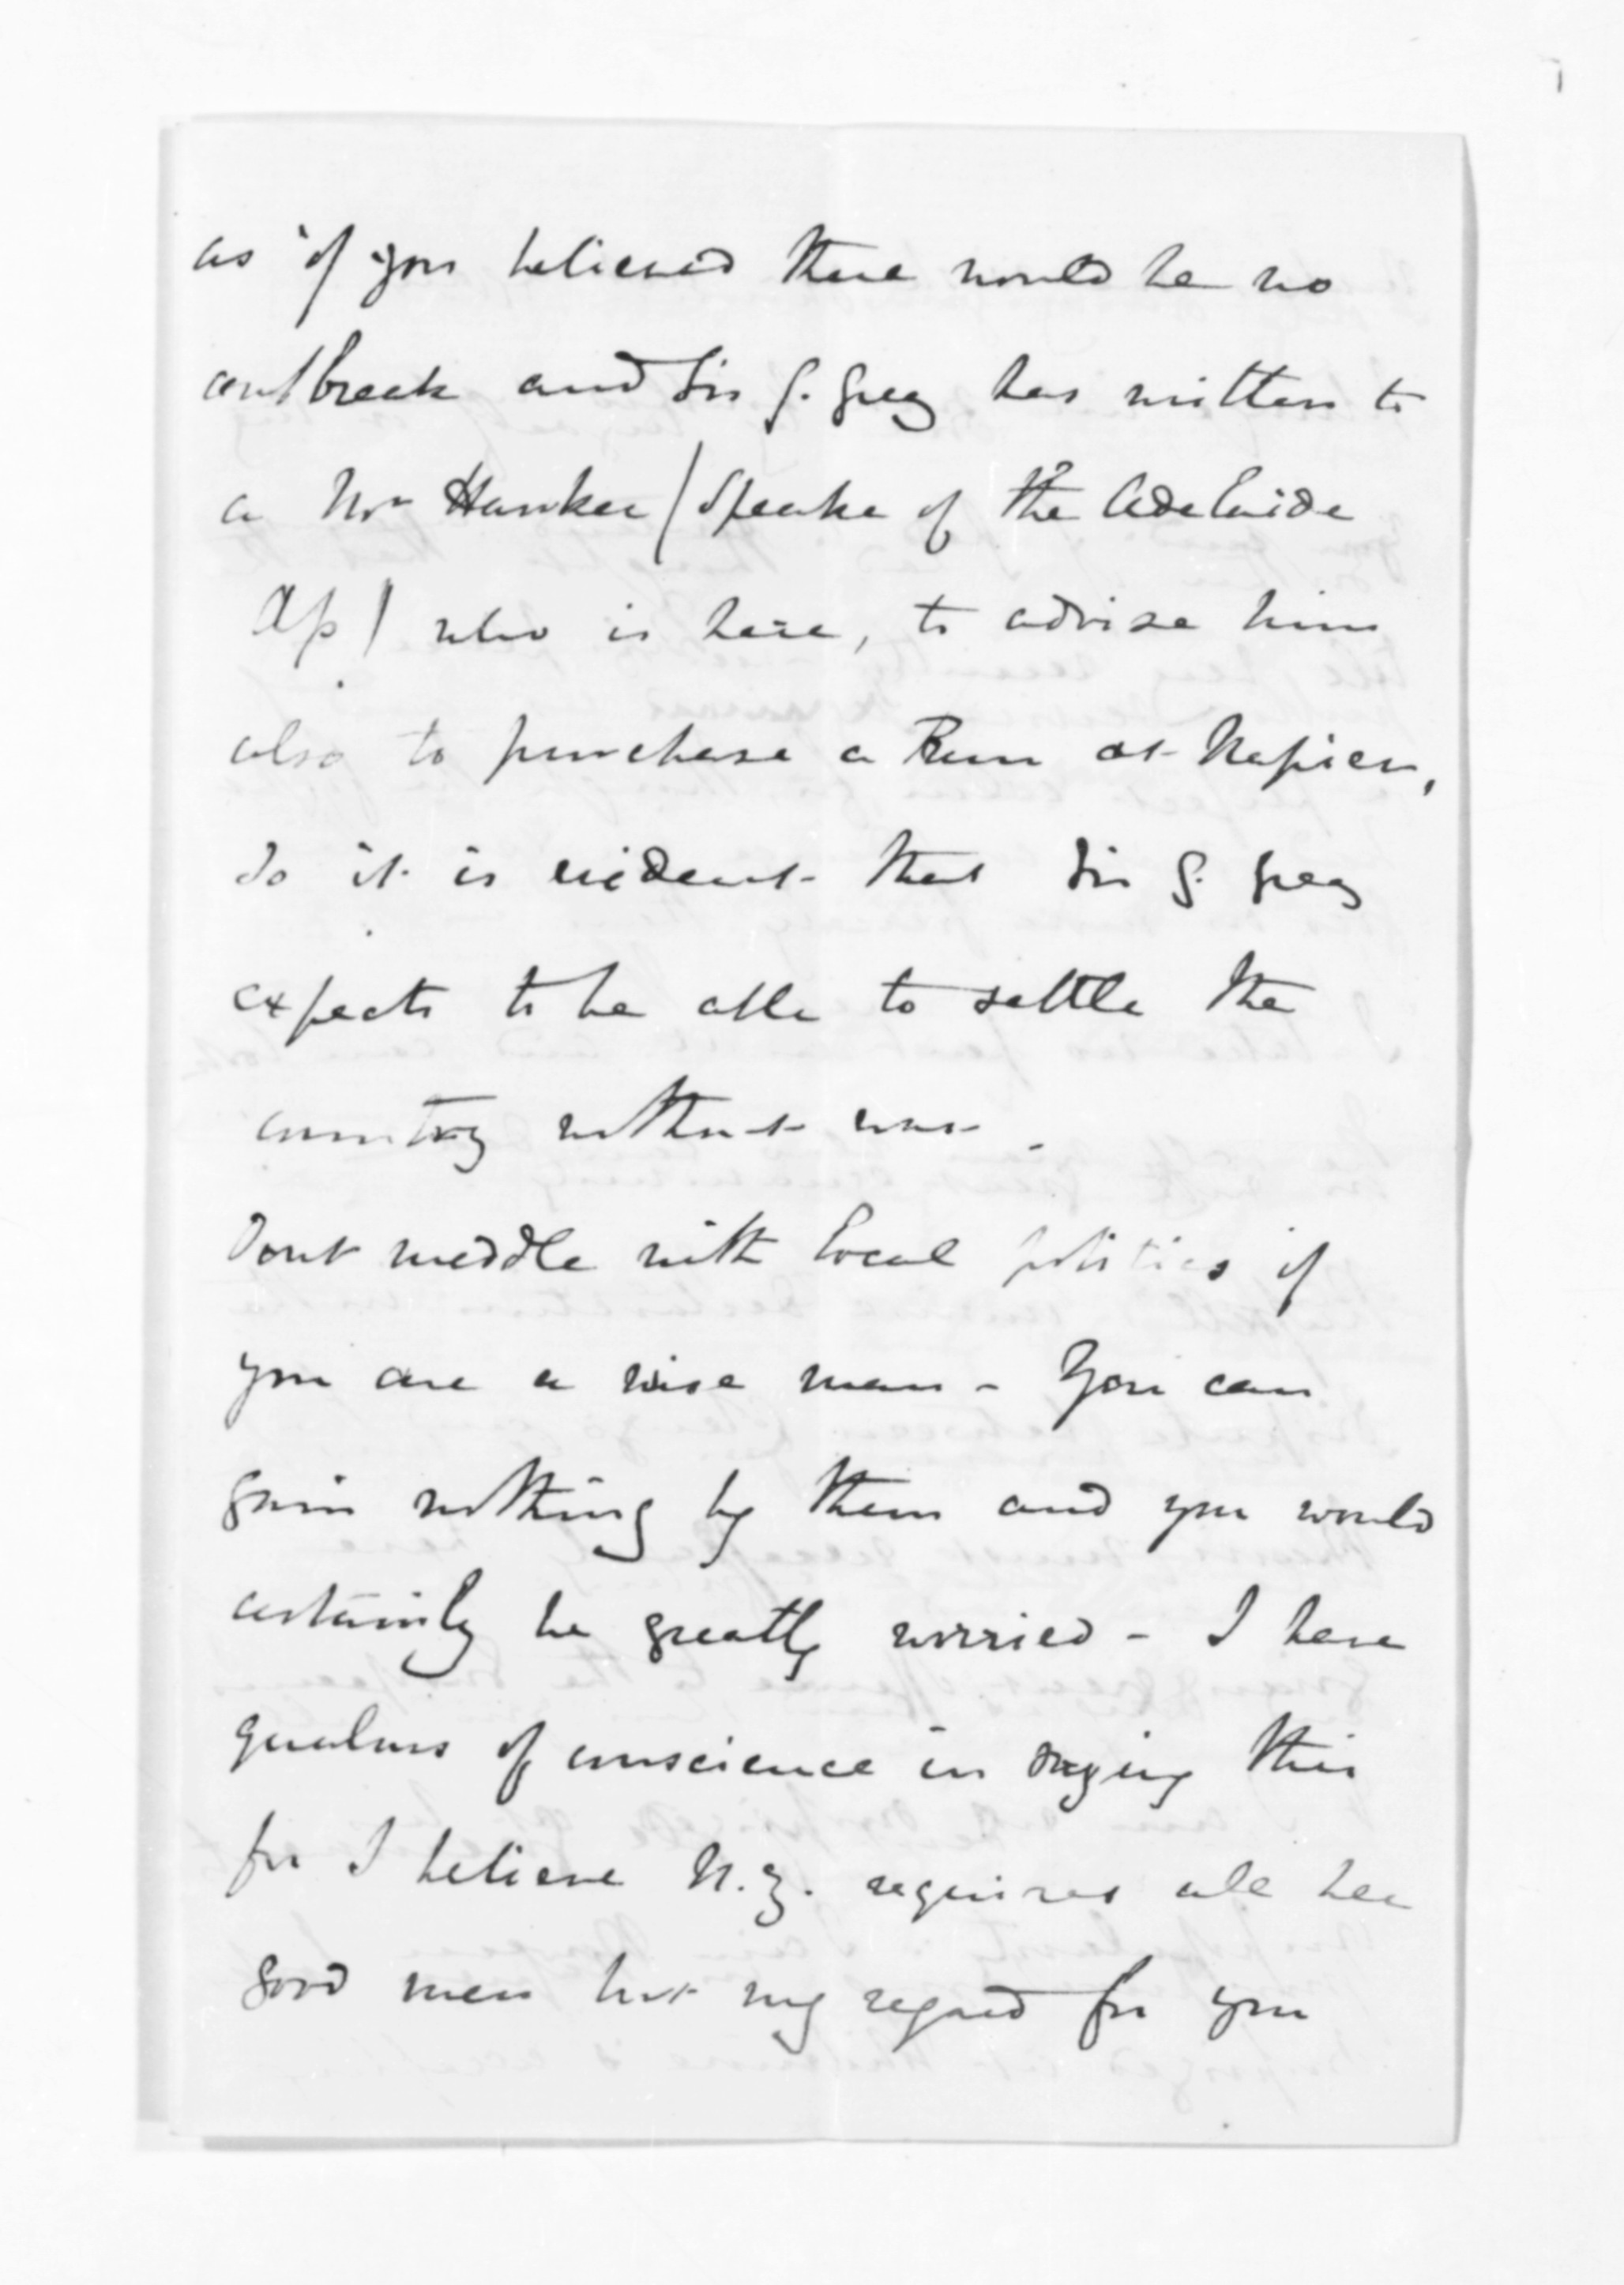 as if you believed there would be no
outbreak and Sir G. Grey has written to
a Mr Hawker (Speaker of the Adelaide
Ap) who is here, to advise him
also to purchase a Run at Napier,
so it is evident that Sir G. Grey
expects to be able to settle the
country without war.
Dont meddle with local politics if
you are a wise man - You can
gain nothing by them and you would
certainly be greatly worried - I have
qualms of conscience in saying this
for I believe N.Z. requires all her
good men but my regard for you